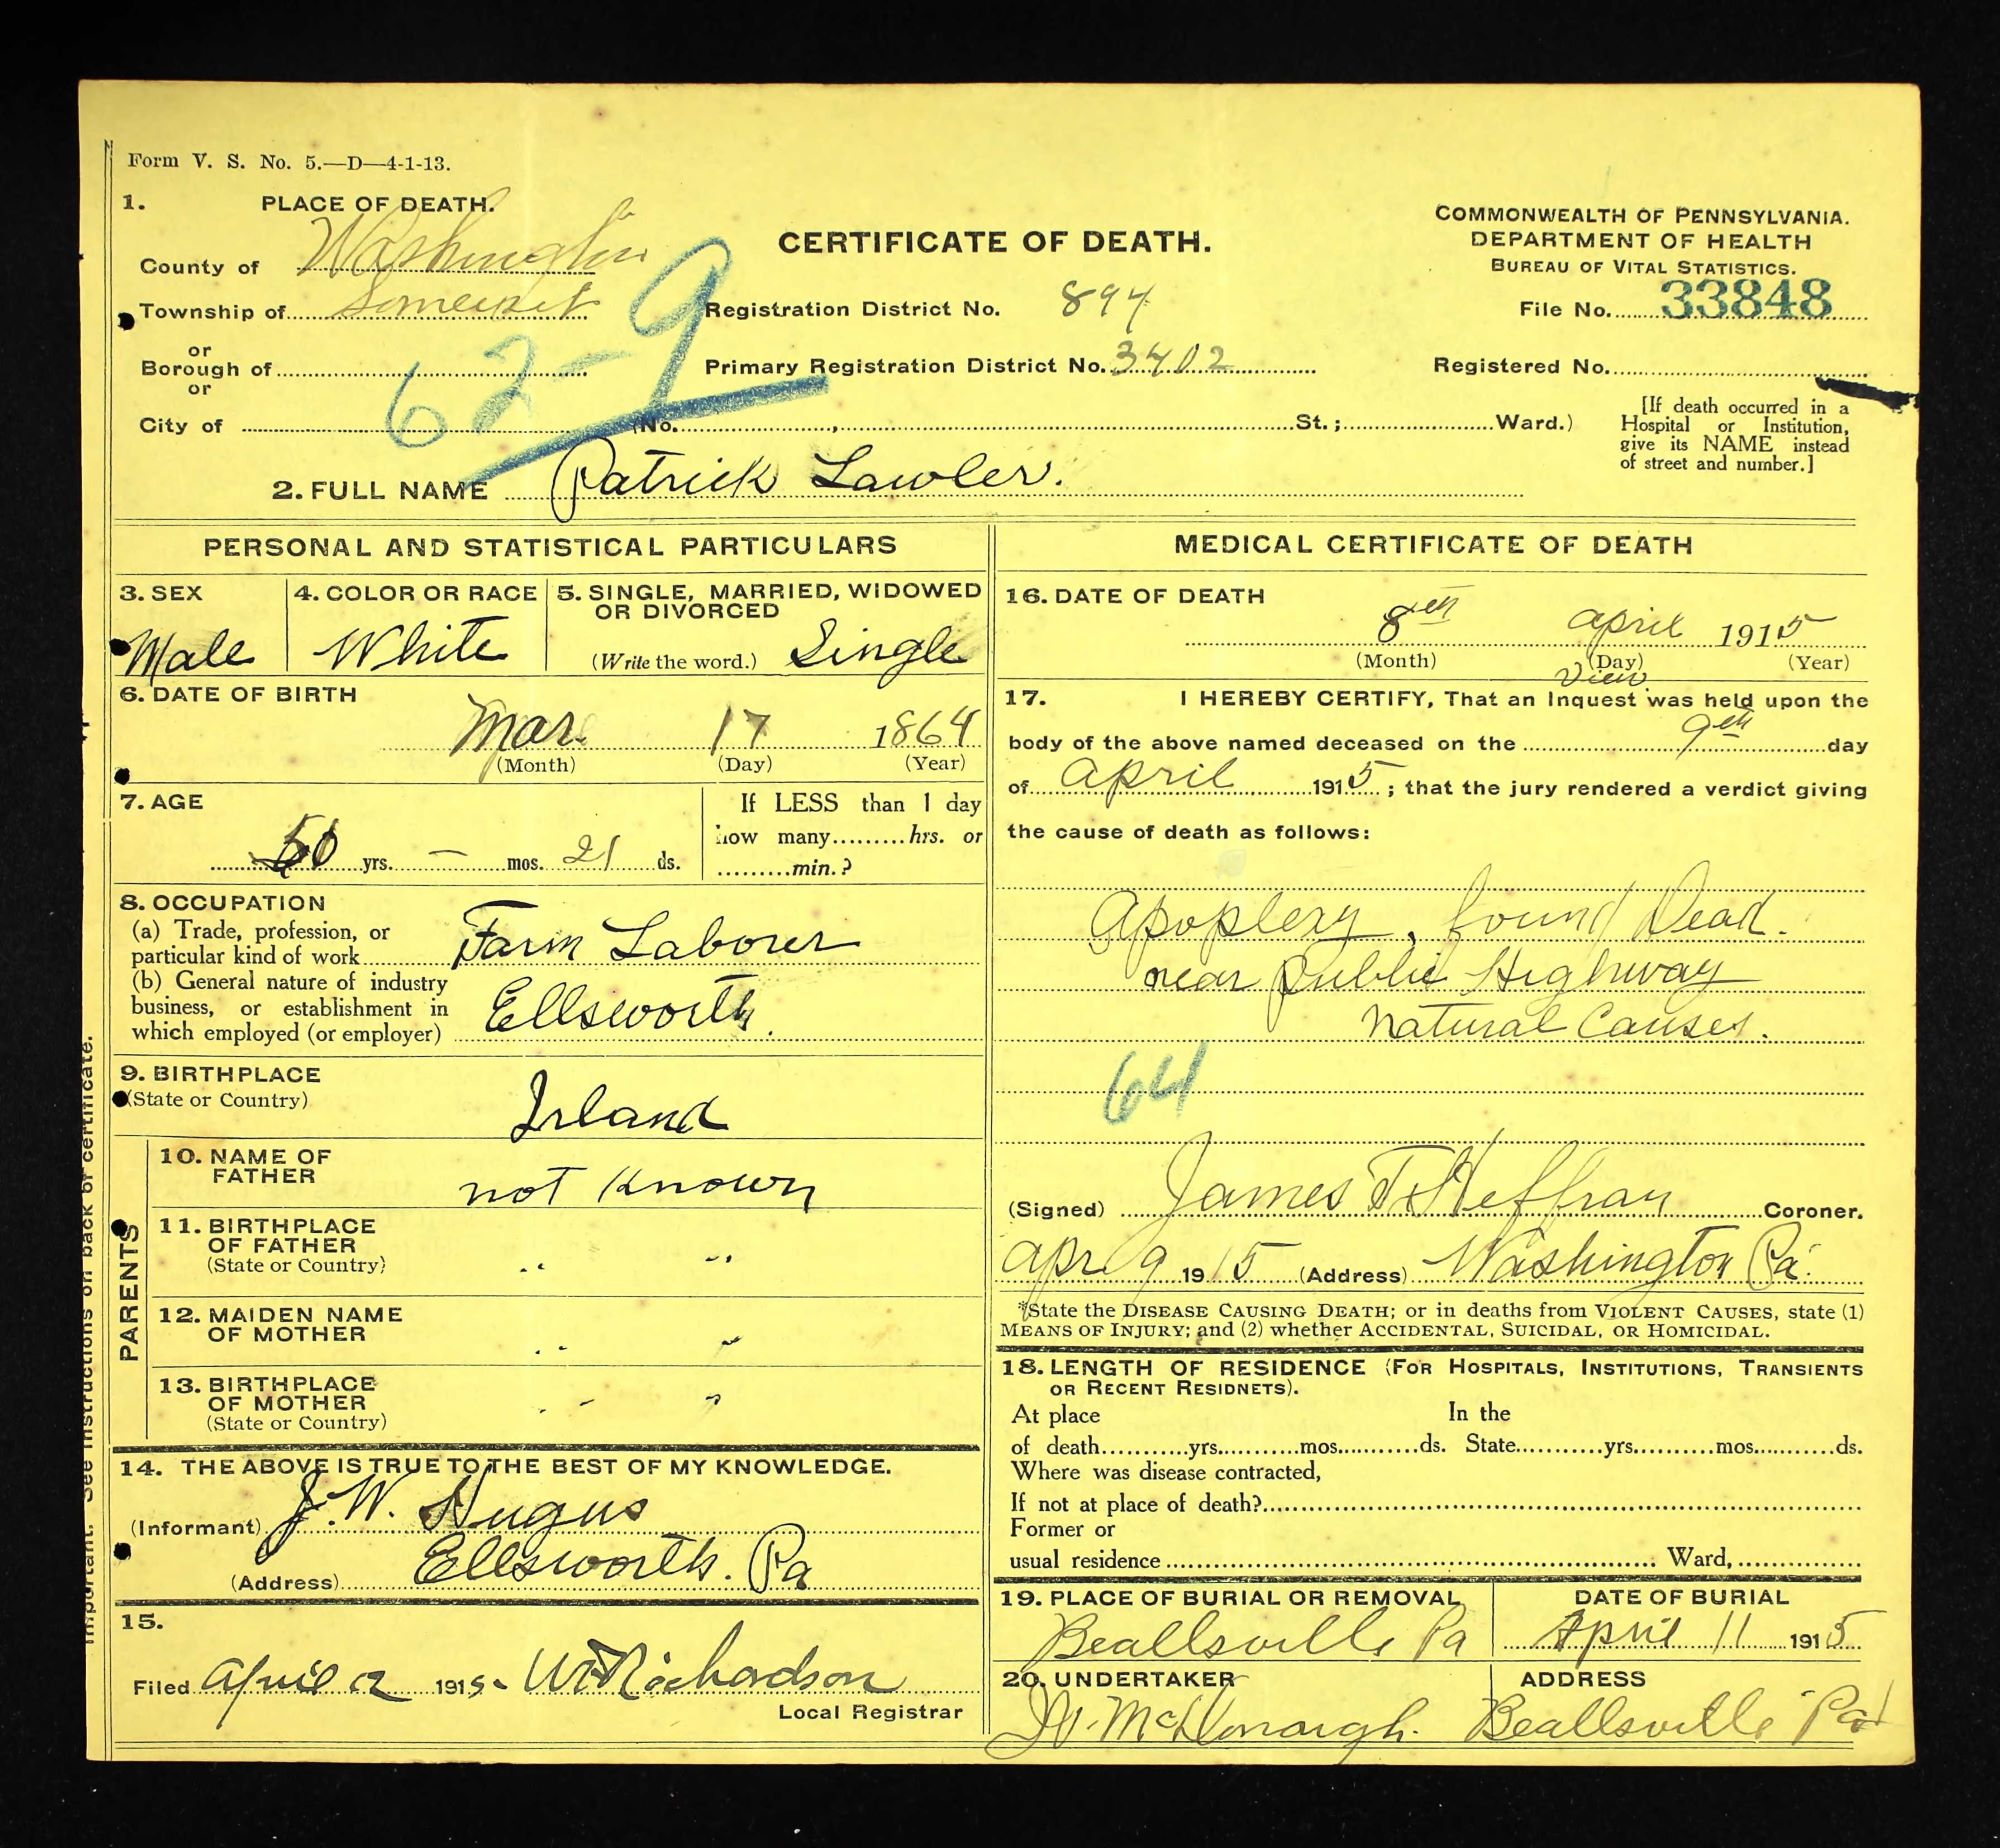 Form V. S. No. 5.—D—4-1-13.
1. PLACE OF DEATH.
County of Washington
Township of Somerset
or
Borough of
or
City of
62-9
CERTIFICATE OF DEATH.
Registration District No. 894
Primary Registration District No. 3402
(No. , St.; Ward.)
COMMONWEALTH OF PENNSYLVANIA.
DEPARTMENT OF HEALTH
BUREAU OF VITAL STATISTICS.
File No. 33848
Registered No.
[If death occurred in a
Hospital or Institution,
give its NAME instead
of street and number.]
2. FULL NAME Patrick Lawler.
PERSONAL AND STATISTICAL PARTICULARS
3. SEX
Male
4. COLOR OR RACE
White
5. SINGLE, MARRIED, WIDOWED
OR DIVORCED
(Write the word.) Single
6. DATE OF BIRTH
Mar. 17 1864
(Month) (Day) (Year)
7. AGE
yrs. — mos. 21 ds.
If LESS than 1 day
how many hrs. or
min.?
8. OCCUPATION
(a) Trade, profession, or
particular kind of work Farm Laborer
(b) General nature of industry
business, or establishment in
which employed (or employer) Ellsworth.
9. BIRTHPLACE
(State or Country)
Irland
PARENTS
10. NAME OF
FATHER
not Known
11. BIRTHPLACE
OF FATHER
(State or Country)
" "
12. MAIDEN NAME
OF MOTHER
" "
13. BIRTHPLACE
OF MOTHER
(State or Country)
" "
14. THE ABOVE IS TRUE TO THE BEST OF MY KNOWLEDGE.
(Informant) J. W. Hugus
(Address) Ellsworth. Pa
15.
Filed April 12 1915. Richardson
Local Registrar
Important. See instructions on back of certificate.
MEDICAL CERTIFICATE OF DEATH
16. DATE OF DEATH
8th April 1915
(Month) (Day) (Year)
17. View
I HEREBY CERTIFY, That an Inquest was held upon the
body of the above named deceased on the 9th day
of April 1915; that the jury rendered a verdict giving
the cause of death as follows:
Apoplexy, found Dead.
near Public Highway
Natural Causes.
64
(Signed) James T Heffran Coroner.
Apr 9 1915 (Address) Washington Pa.
*State the DISEASE CAUSING DEATH; or in deaths from VIOLENT CAUSES, state (1)
MEANS OF INJURY; and (2) whether ACCIDENTAL, SUICIDAL, OR HOMICIDAL.
18. LENGTH OF RESIDENCE (FOR HOSPITALS, INSTITUTIONS, TRANSIENTS
OR RECENT RESIDNETS).
At place In the
of death yrs. mos. ds. State yrs. mos. ds.
Where was disease contracted,
If not at place of death?
Former or
usual residence Ward,
19. PLACE OF BURIAL OR REMOVAL
Beallsville Pa
DATE OF BURIAL
April 11 1915
20. UNDERTAKER
McDonough.
ADDRESS
Beallsville Pa